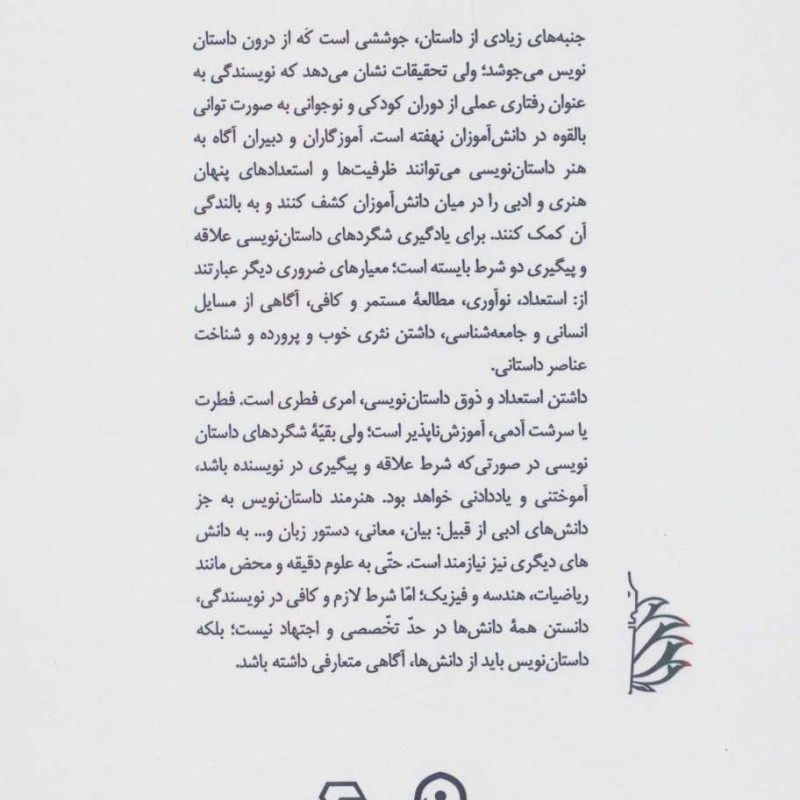 جنبه‌های زیادی از داستان، جوششی است که از درون داستان
نویس می‌جوشد؛ ولی تحقیقات نشان می‌دهد که نویسندگی به
عنوان رفتاری عملی از دوران کودکی و نوجوانی به صورت توانی
بالقوه در دانش‌آموزان نهفته است. آموزگاران و دبیران آگاه به
هنر داستان‌نویسی می‌توانند ظرفیت‌ها و استعدادهای پنهان
هنری و ادبی را در میان دانش‌آموزان کشف کنند و به بالندگی
آن کمک کنند. برای یادگیری شگردهای داستان‌نویسی علاقه
و پیگیری دو شرط بایسته است؛ معیارهای ضروری دیگر عبارتند
از: استعداد، نوآوری، مطالعهٔ مستمر و کافی، آگاهی از مسایل
انسانی و جامعه‌شناسی، داشتن نثری خوب و پرورده و شناخت
عناصر داستانی.
داشتن استعداد و ذوق داستان‌نویسی، امری فطری است. فطرت
یا سرشت آدمی، آموزش‌ناپذیر است؛ ولی بقیّهٔ شگردهای داستان
نویسی در صورتی‌که شرط علاقه و پیگیری در نویسنده باشد،
آموختنی و یاددادنی خواهد بود. هنرمند داستان‌نویس به جز
دانش‌های ادبی از قبیل: بیان، معانی، دستور زبان و... به دانش
های دیگری نیز نیازمند است. حتّی به علوم دقیقه و محض مانند
ریاضیات، هندسه و فیزیک؛ امّا شرط لازم و کافی در نویسندگی،
دانستن همهٔ دانش‌ها در حدّ تخّصصی و اجتهاد نیست؛ بلکه
داستان‌نویس باید از دانش‌ها، آگاهی متعارفی داشته باشد.